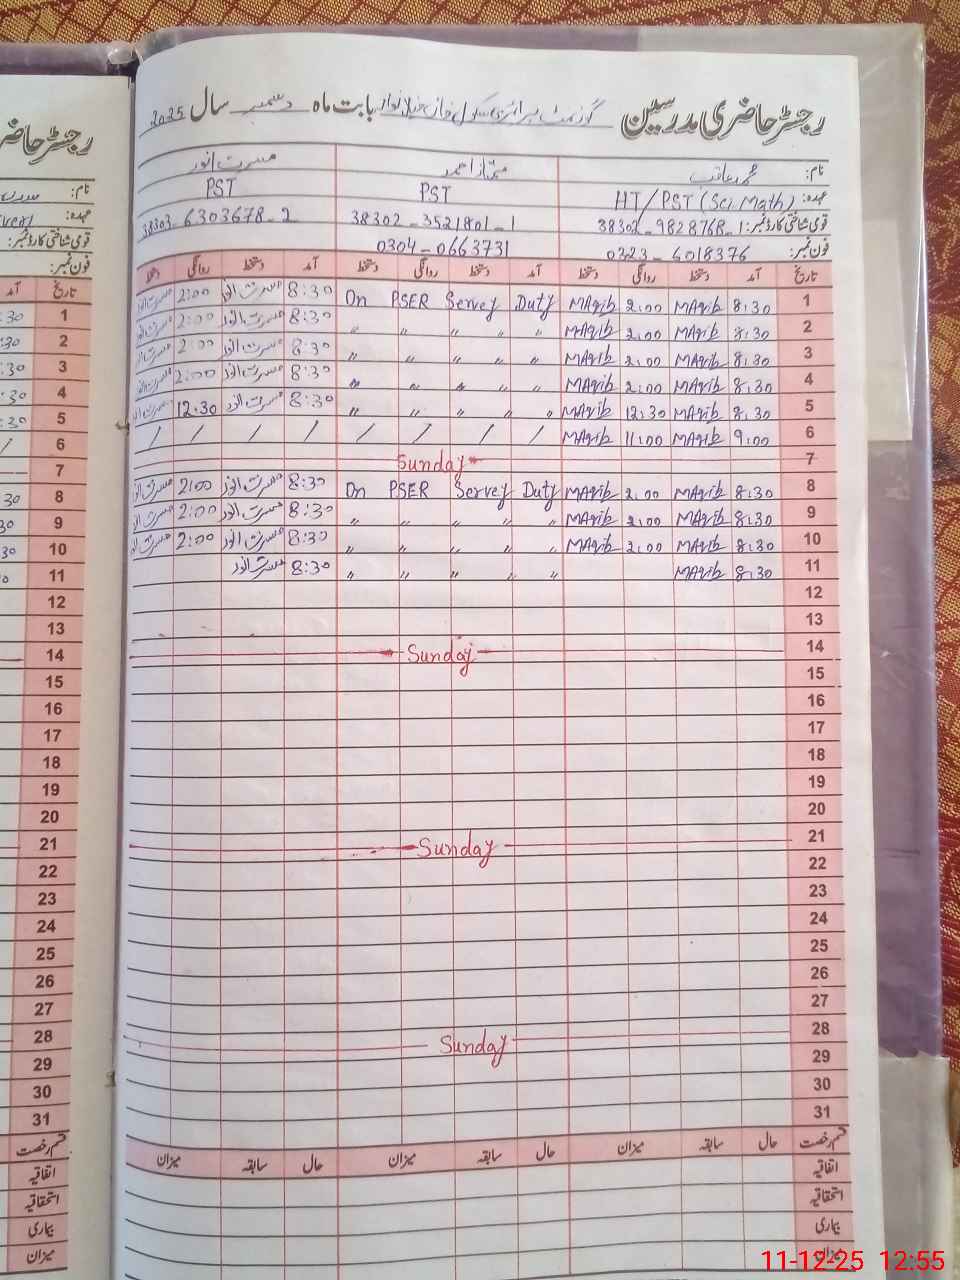 رجسٹر حاضری مدرسین گورنمنٹ پرائمری سکول نواز بابت ماہ دسمبر سال 2025
نام: محمد عاقب ممتاز احمد مسرت انور
عہدہ: HT/PST (Sci Math) PST PST
قومی شناختی کارڈ نمبر: 38302-9828768-1 38302-3521801-1 38303-6303678-2
فون نمبر: 0323-6018376 0304-0663731
تاریخ آمد دستخط روانگی دستخط آمد دستخط روانگی دستخط آمد دستخط روانگی دستخط
1 8:30 MAqib 2:00 MAqib On PSER Servey Duty 8:30 مسرت انور 2:00 مسرت انور
2 8:30 MAqib 2:00 MAqib " " " " 8:30 مسرت انور 2:00 مسرت انور
3 8:30 MAqib 2:00 MAqib " " " " 8:30 مسرت انور 2:00 مسرت انور
4 8:30 MAqib 2:00 MAqib " " " " 8:30 مسرت انور 2:00 مسرت انور
5 8:30 MAqib 12:30 MAqib " " " " 8:30 مسرت انور 12:30 مسرت انور
6 9:00 MAqib 11:00 MAqib / / / / / / / /
7 Sunday
8 8:30 MAqib 2:00 MAqib On PSER Servey Duty 8:30 مسرت انور 2:00 مسرت انور
9 8:30 MAqib 2:00 MAqib " " " " 8:30 مسرت انور 2:00 مسرت انور
10 8:30 MAqib 2:00 MAqib " " " " 8:30 مسرت انور 2:00 مسرت انور
11 8:30 MAqib " " " " 8:30 مسرت انور
12
13
14 Sunday
15
16
17
18
19
20
21 Sunday
22
23
24
25
26
27
28 Sunday
29
30
31
قسم رخصت حال سابقہ میزان حال سابقہ میزان حال سابقہ میزان
اتفاقیہ
استحقاقیہ
بیماری
میزان
رجسٹر حاضر
نام:
عہدہ:
قومی شناختی کارڈ نمبر:
فون نمبر:
تاریخ آمد
1 :30
2 :30
3 :30
4 :30
5 :30
6 /
7
8 30
9 30
10 30
11
12
13
14
15
16
17
18
19
20
21
22
23
24
25
26
27
28
29
30
31
قسم رخصت
اتفاقیہ
استحقاقیہ
بیماری
میزان
11-12-25 12:55